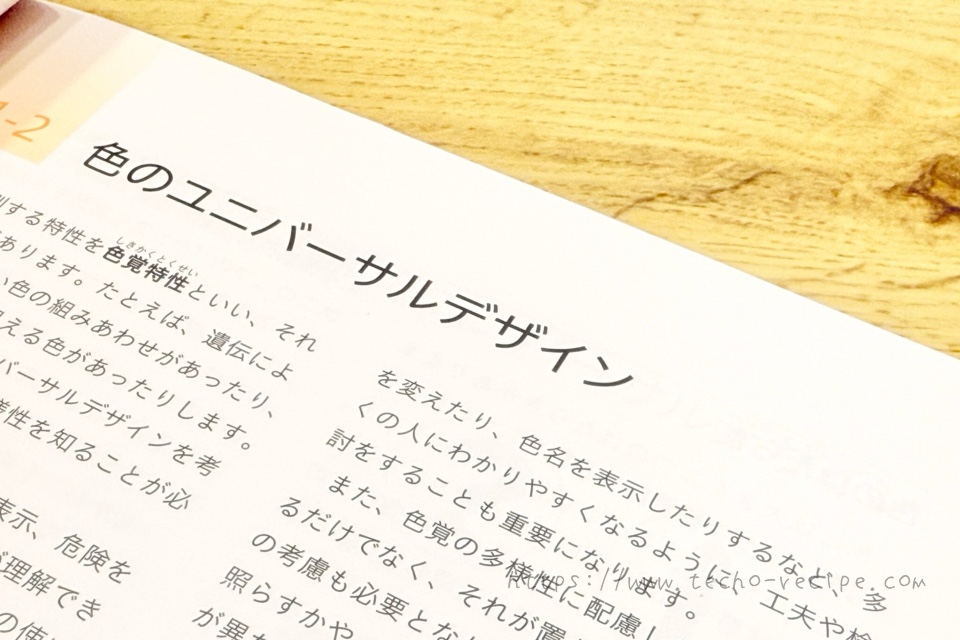 1-2
色のユニバーサルデザイン
する特性を色覚特性といい、それ
しきかくとくせい
あります。たとえば、遺伝によ
い色の組みあわせがあったり、
見える色があったりします。
バーサルデザインを考
様性を知ることが必
表示、危険を
理解でき
の使
を変えたり、色名を表示したりするなど、多
くの人にわかりやすくなるように、工夫や検
討をすることも重要になります。
また、色覚の多様性に配慮し
るだけでなく、それが置
の考慮も必要とな
照らすかや
が異
https://www.techo-recipe.com